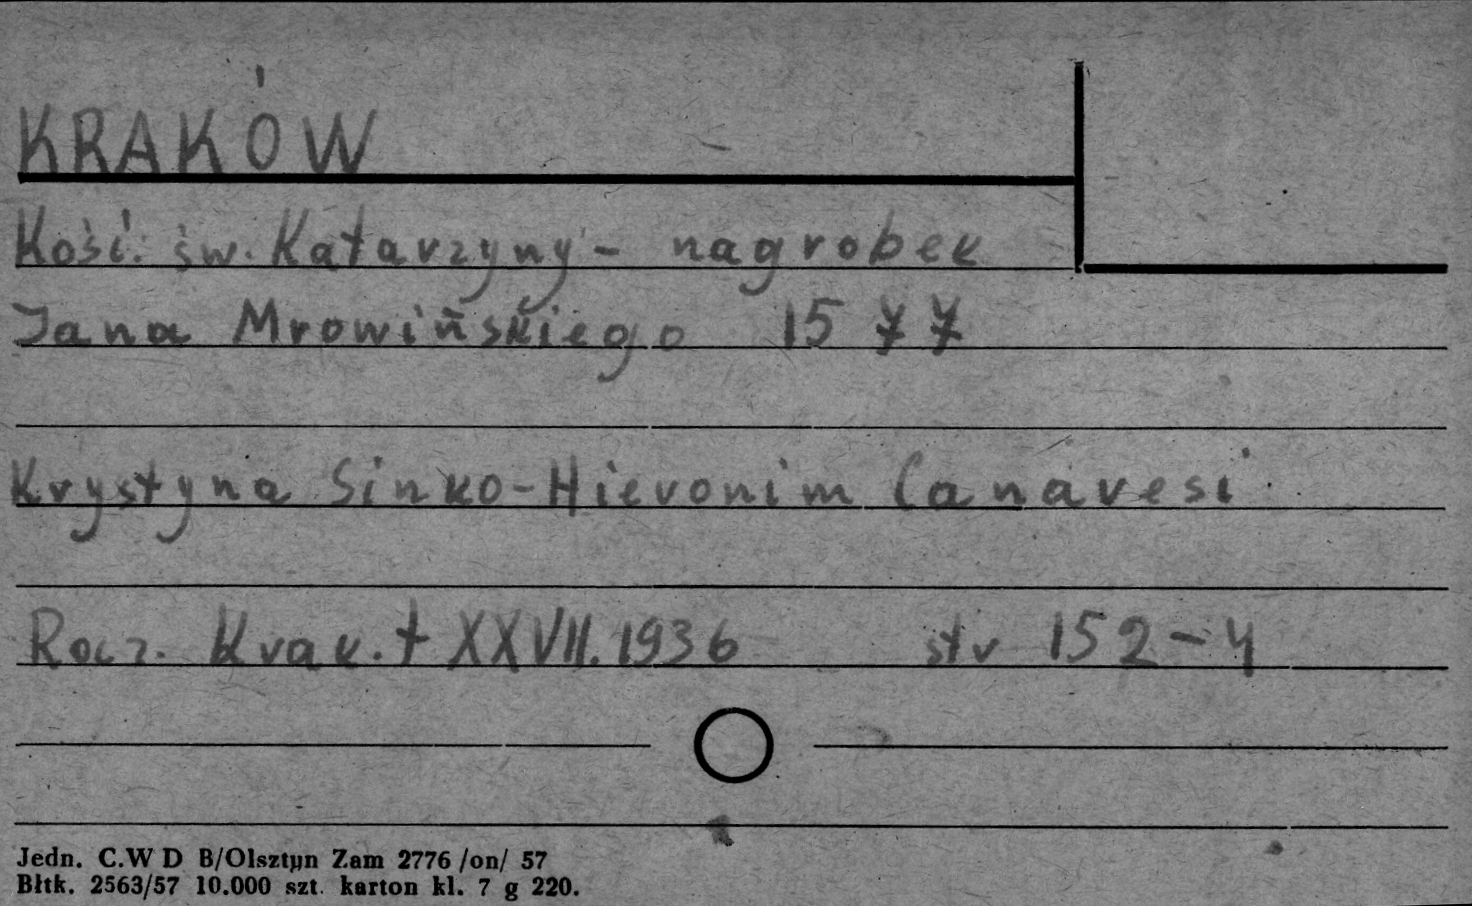 KRAKÓW
Kość. św. Katarzyny - nagrobek
Jana Mrowińskiego 1577
Krystyna Sinko - Hieronim Canavesi
Rocz. Krak. t XXVII. 1936 str 152-4
Jedn. C.W D B/Olsztyn Zam 2776 /on/ 57
Błtk. 2563/57 10.000 szt. karton kl. 7 g 220.